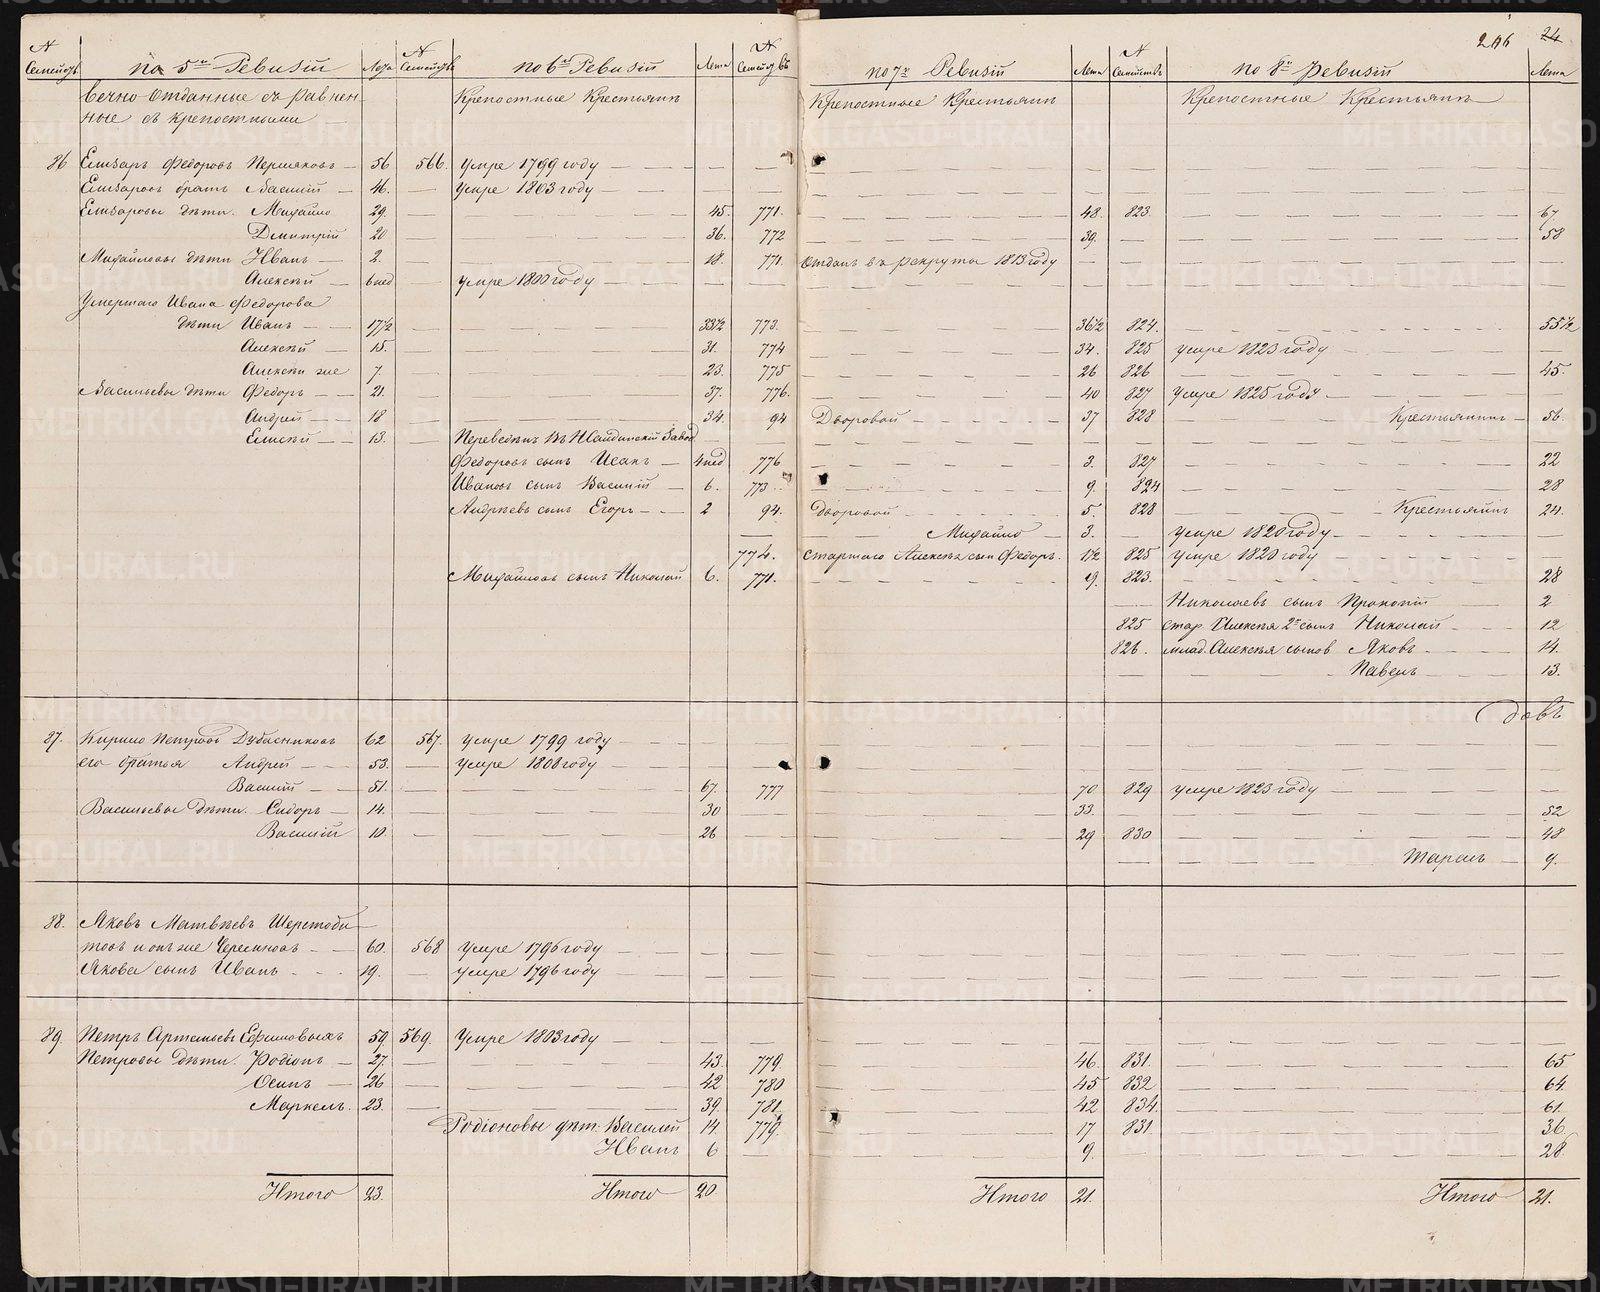 246 24
N Семействъ по 5й Ревизiи Лета N Семействъ по 6й Ревизiи Лета N Семействъ по 7й Ревизiи Лета N Семействъ по 8й Ревизiи Лета
Вечно Отданные съ равнен- Крепостные Крестьяне Крепостные Крестьяне Крепостные Крестьяне
ные съ крепостными
86 Елизаръ Федоровъ Пермяковъ 56 566. умре 1799 году
Елизаровъ братъ Василiй 46. умре 1803 году
Елизаровы дѣти. Михайло 29. 45. 771. 48. 823. 67.
Дмитрiй 20 36. 772 39. 58
Михайловы дѣти Иванъ 2. 18. 771. Отданъ въ рекруты 1813 году
Алексѣй 6 нед умре 1800 году
Умершаго Ивана Федорова
дѣти Иванъ 17½ 33½ 773. 36½ 824. 55½
Алексѣй 15. 31. 774 34. 825 умре 1823 году
Алексѣй же 7. 23. 775 26 826 45.
Васильевы дѣти Федоръ 21. 37. 776. 40 827 умре 1825 году
Андрей 18 34. 94 Дворовой 37 828 Крестьянинъ 56.
Елисѣй 13. Переведенъ въ Завод
Федоровъ сынъ Исакъ 4 нед 776 3. 827 22
Ивановъ сынъ Василiй 6. 773. 9. 824 28
Андрѣевъ сынъ Егоръ 2 94. Дворовой 5. 828 Крестьянинъ 24.
Михайло 3. умре 1820 году
774. Старшаго Алексѣя сын Федоръ. 1½ 825 умре 1820 году
Михайловъ сынъ Николай 6. 771. 9. 823. 28
Николаевъ сынъ Прокопiй 2
825 стар. Алексѣя 2й сынъ Николай 12
826. млад. Алексѣя сынов Яковъ 14.
Павелъ 13.
87. Кирило Петровъ Дубасниковъ 62 567. умре 1799 году
его братья Андрей 53. умре 1800 году
Василiй 51. 67. 777 70 829 умре 1823 году
Васильевы дѣти. Сидоръ 14. 30 33. 52
Василiй 10. 26 29 830 48
Тарасъ 9.
88. Яковъ Матвѣевъ Шерстоби-
товъ и онъ же 60. 568 умре 1796 году
Якова сынъ Иванъ 19. умре 1796 году
89. Петръ Артемьевъ Ефимовыхъ 59. 569. Умре 1803 году
Петровы дѣти. Родiонъ 27. 43. 779. 46 831. 65
Осипъ 26 42 780 45 832 64.
Маркелъ. 23. 39. 781. 42 834. 61.
Родiоновы дѣт. Василей 14 779. 17 831. 36.
Иванъ 6 9. 28.
Итого 23. Итого 20 Итого 21. Итого 21.
METRIKI.GASO-URAL.RU